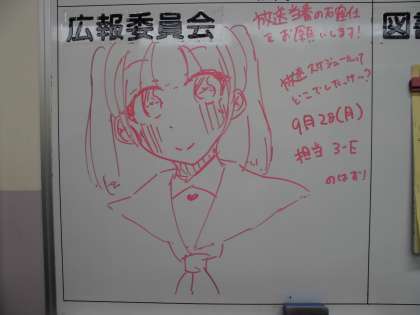 広報委員会
図
放送当番のお宣伝
をお願いします!
放送スケジュールって
どこでしたっけ〜?
9月28(月)
担当 3-E
のはず!